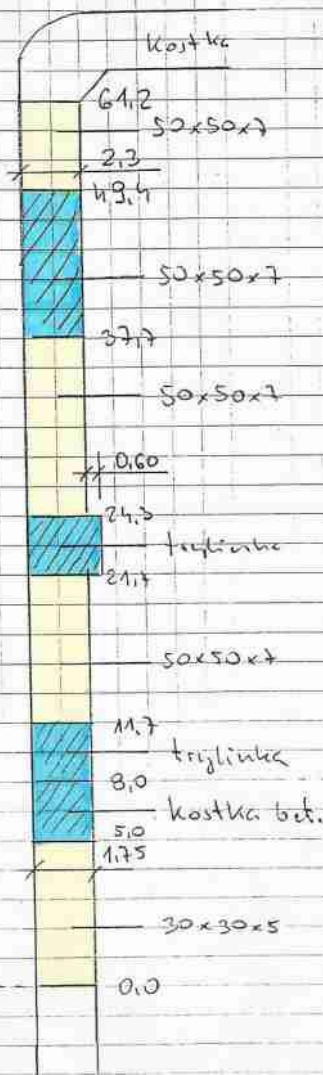 Kostka
61,2
50x50x7
2,3
49,4
50x50x7
37,7
50x50x7
0,60
24,3
trylinka
21,7
50x50x7
11,7
trylinka
8,0
kostka bet.
5,0
1,75
30x30x5
0,0